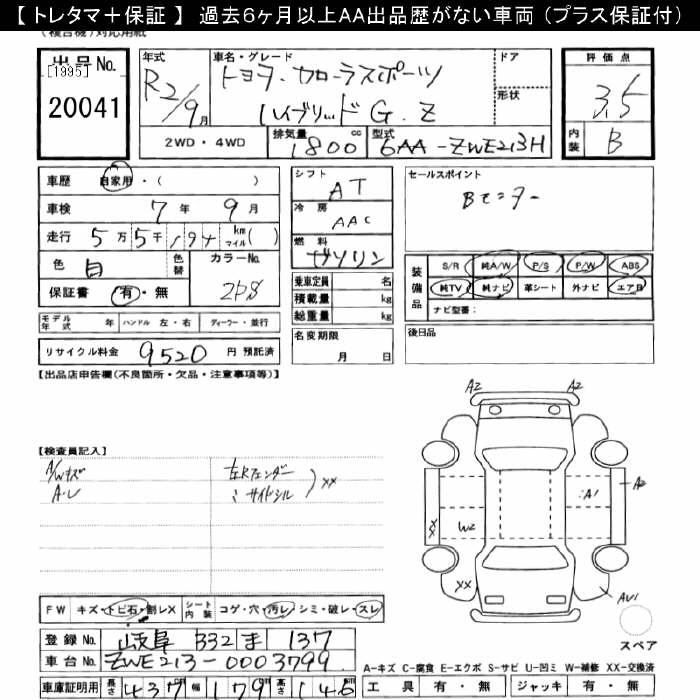 【 トレタマ＋保証 】 過去６ヶ月以上ＡＡ出品歴がない車両 （プラス保証付）
(複合機)対応用紙
出品No.
[1995]
20041
年式
R2/9月
車名・グレード
トヨタ・カローラスポーツ
ハイブリッド G．Z
ドア
形状
評価点
3.5
内装 B
2WD ・ 4WD
排気量 1800 cc
型式 6AA-ZWE213H
車歴 自家用 ・（ ）
車検 7 年 9 月
走行 5万5千194 km マイル( )
色 白 色替 カラーNo.
保証書 有・無 2PS
モデル年式 年 ハンドル 左・右 ディーラー・並行
リサイクル料金 9520 円 預託済
シフト AT
冷房 AAC
燃料 ガソリン
乗車定員 名
積載量 kg
総重量 kg
名変期限 月 日
セールスポイント
Bモニター
装備品 S/R 純A/W P/S P/W ABS
純TV 純ナビ 革シート 外ナビ エアB
ナビ型番：
後日品
【出品店申告欄(不良箇所・欠品・注意事項等)】
【検査員記入】
A/Wキズ
A・U
左Rフェンダー
〃 サイドシル
XX
A2 A2
A1 A2
XX W2
XX AU1
スペア
FW キズ・トビ石・割レX シート内装 コゲ・穴・汚レ・シミ・破レ・スレ
登録No. 岐阜 332 ま 137
車台No. ZWE213-0003799
車庫証明用 長さ 437 幅 179 高さ 146
A-キズ C-腐食 E-エクボ S-サビ U-凹ミ W-補修 XX-交換済
工具 有・無 ジャッキ 有・無